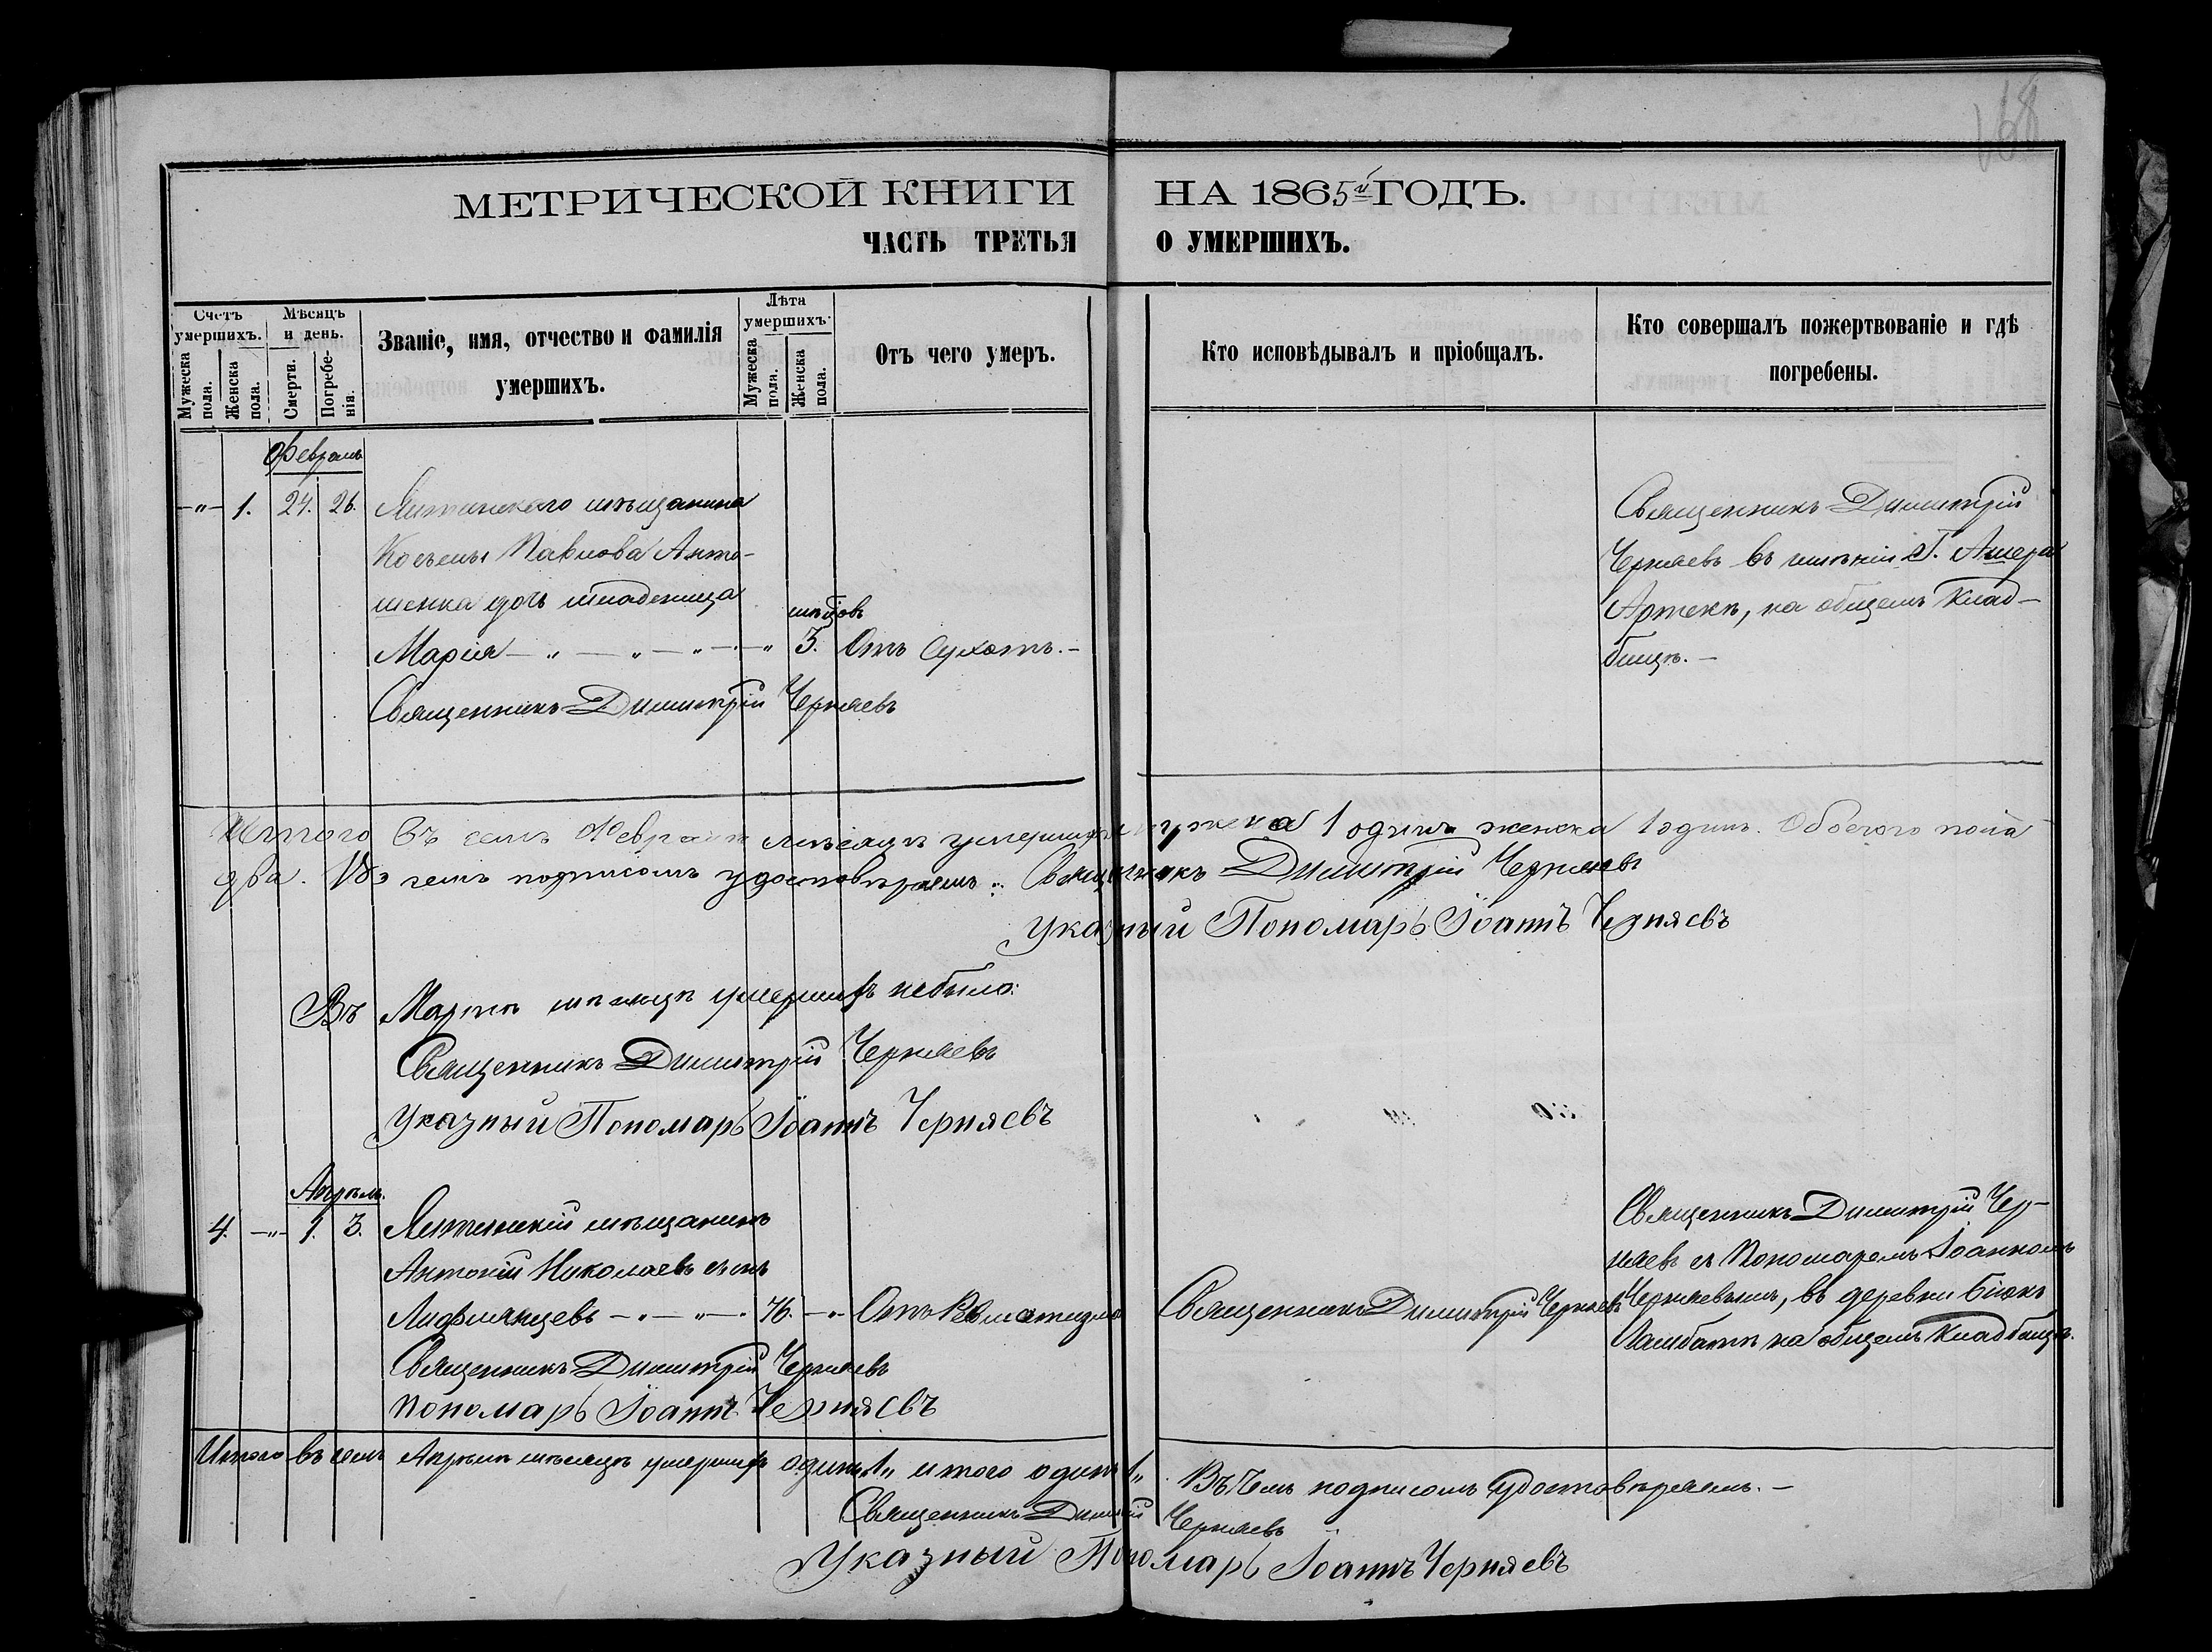 168
МЕТРИЧЕСКОЙ КНИГИ НА 1865й ГОДЪ.
ЧАСТЬ ТРЕТЬЯ О УМЕРШИХЪ.
Счетъ умершихъ.
Мужеска пола.
Женска пола.
Мѣсяцъ и день.
Смерти.
Погребенія.
Званіе, имя, отчество и фамилія
умершихъ.
Лѣта умершихъ.
Мужеска пола.
Женска пола.
Отъ чего умеръ.
Кто исповѣдывалъ и пріобщалъ.
Кто совершалъ пожертвованіе и гдѣ
погребены.
Февраль
-„- 1. 24. 26. Ялтинскаго мѣщанина
Косьмы Павлова Анто-
шенка дочь младеница
Марія 3. Отъ Сухотъ.-
Священникъ Димитрій Черняевъ
Священникъ Димитрій
Черняевъ въ имѣніи Г. Ашера
Артекъ, на общемъ клад-
бищѣ.-
Итого въ семъ Февралѣ мѣсяцѣ умершихъ мужеска 1 одинъ женска 1 одинъ. Обоего пола
два. Въ чемъ подписомъ удостовѣряемъ: Священникъ Димитрій Черняевъ
Указный Пономарь Іоаннъ Черняевъ
Въ Мартѣ мѣсяцѣ умершихъ небыло:
Священникъ Димитрій Черняевъ
Указный Пономарь Іоаннъ Черняевъ
Апрѣль.
4. -„- 1. 3. Ялтинскій мѣщанинъ
Антоній Николаевъ сынъ
Лифлянцевъ 76. -„- Отъ Ревматизма
Священникъ Димитрій Черняевъ
Пономарь Іоаннъ Черняевъ
Священникъ Димитрій Черняевъ
Священникъ Димитрій Чер-
няевъ съ Пономаремъ Іоанномъ
Черняевымъ, въ деревни Біюкъ
Ламбатѣ на общемъ кладбищѣ.
Итого въ семъ Апрѣлѣ мѣсяцѣ умершихъ одинъ 1„ итого одинъ 1„ Въ Чемъ подписомъ удостовѣряемъ.-
Священникъ Димитрій Черняевъ
Указный Пономарь Іоаннъ Черняевъ